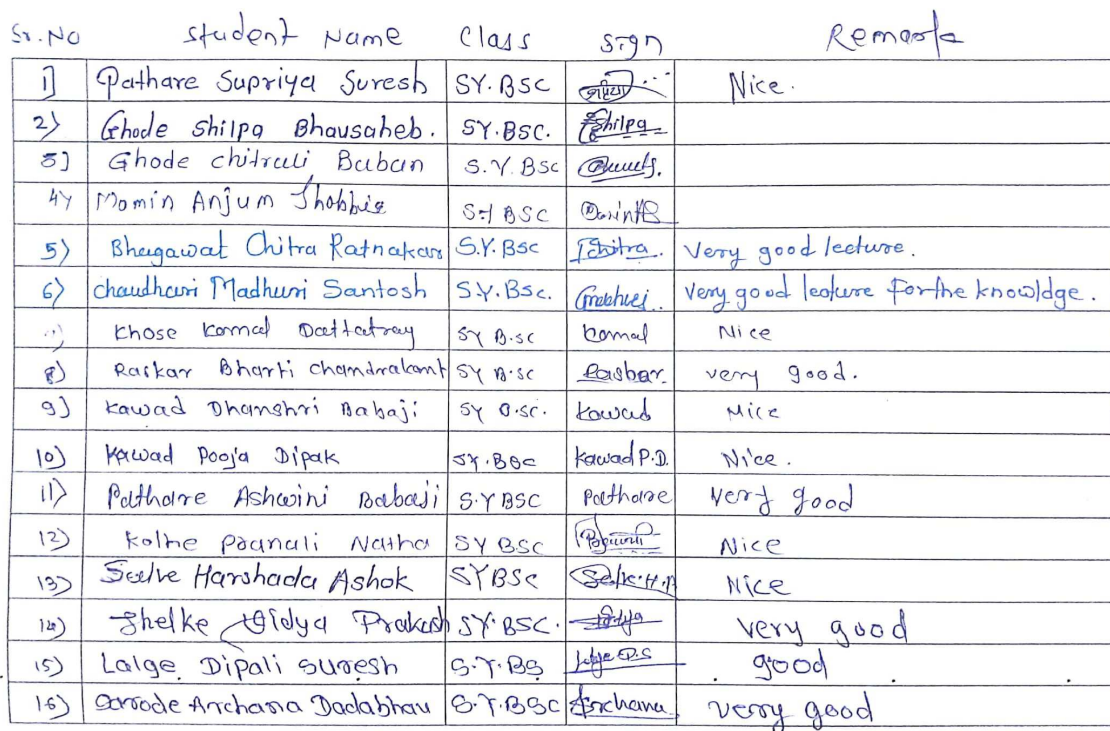 Sr.No Student Name Class Sign Remark
1) Pathare Supriya Suresh SY.BSC Nice.
2) Ghode Shilpa Bhausaheb. SY.BSC. Shilpa
3) Ghode chitrali Baban S.Y.BSC
4) Momin Anjum SY BSC
5) Bhagawat Chitra Ratnakar S.Y.BSC Chitra. Very good lecture.
6) chaudhari Madhuri Santosh S.Y.BSC. Very good lecture for the knowldge.
Khose Komal Dattatray SY B.SC Komal Nice
8) Raskar Bharti chandrakant SY B.SC Raskar very good.
9) Kawad Dhanshri Babaji SY B.SC. Kawad Nice
10) Kawad Pooja Dipak SY.BSC Kawad P.D. Nice.
11) Pathare Ashwini Babaji S.Y BSC Pathare Very good
12) Kolhe Pranali Natha SY BSC Nice
13) Salve Harshada Ashok SYBSC Nice
14) Shelke Vidya Prakash SY.BSC. Vidya very good
15) Lalge Dipali suresh S.Y.BS good
16) Sarode Archana Dadabhau S.Y.BSC Archana very good